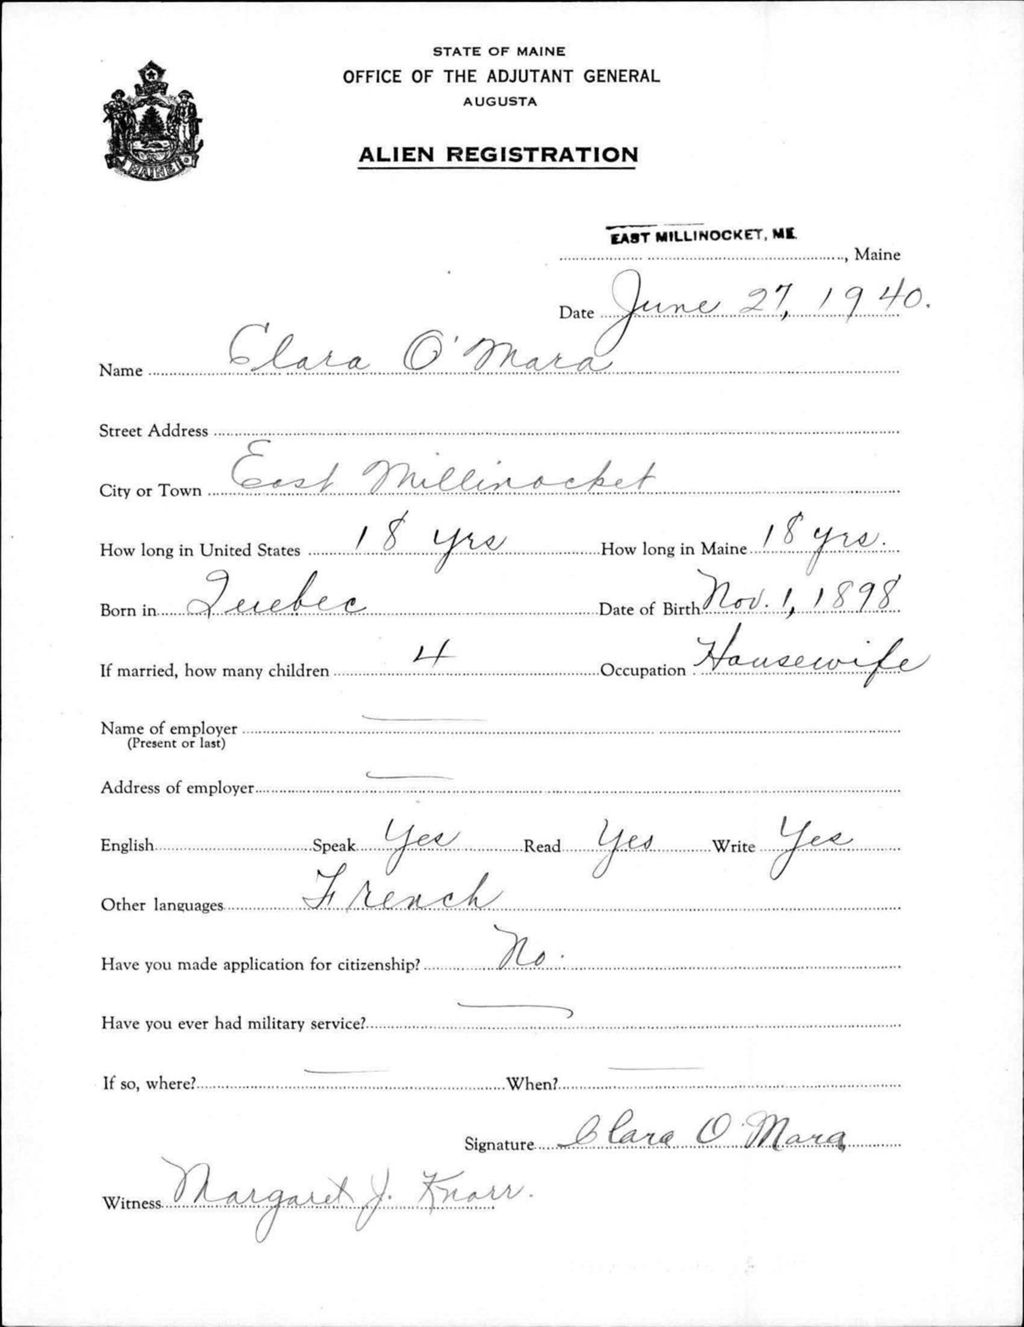 STATE OF MAINE
OFFICE OF THE ADJUTANT GENERAL
AUGUSTA
ALIEN REGISTRATION
MAINE
EAST MILLINOCKET, ME.
, Maine
Date June 27, 1940.
Name Clara O'Mara
Street Address
City or Town East Millinocket
How long in United States 18 yrs How long in Maine 18 yrs.
Born in Quebec Date of Birth Nov. 1, 1898
If married, how many children 4 Occupation Housewife
Name of employer
(Present or last)
Address of employer
English Speak Yes Read Yes Write Yes
Other languages French
Have you made application for citizenship? No.
Have you ever had military service?
If so, where? When?
Signature Clara O'Mara
Witness Margaret J. Knarr.